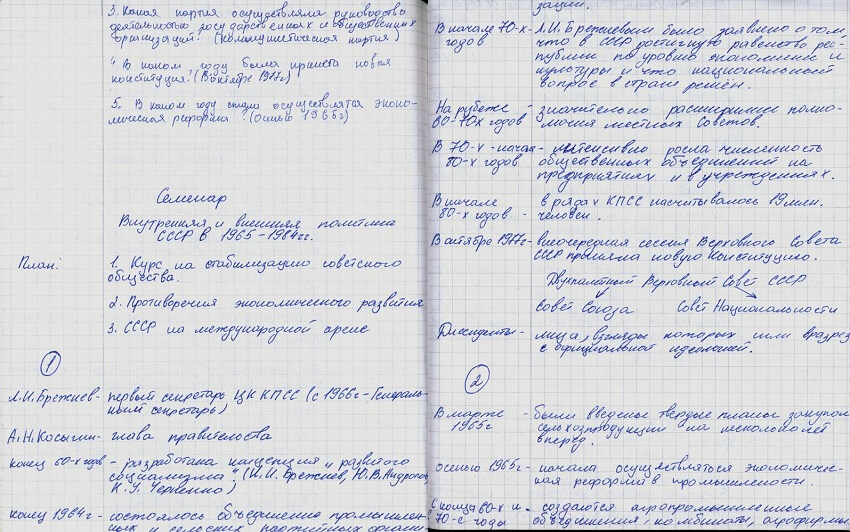 3. Какая партия осуществляла руководство
деятельностью государственных и общественных
организаций? (Коммунистическая партия)
4. В каком году была принята новая
конституция? (В октябре 1977г)
5. В каком году стали осуществлятся эконо-
мическая реформа? (Осенью 1965г)
Семенар
Внутренняя и внешняя политика
СССР в 1965-1984гг.
План:
1. Курс на стабилизацию советского
общества.
2. Противоречия экономического развития
3. СССР на международной арене
1
Л.И.Брежнев- первый секретарь ЦК КПСС (с 1966г-Генераль-
ный секретарь)
А.Н.Косыгин- глава правительства
конец 60-х годов - разработана концепция „развитого
социализма". (Л.И.Брежнев, Ю.В.Андропов,
К.У.Черненко)
конец 1964г- состоялось объединение промышлен-
ных и сельских партийных органи
зации.
В начале 70-х годов - Л.И.Брежневым было заявлено о том,
что в СССР достигнуто равенство рес-
публик по уровню экономики и
культуры и что национальный
вопрос в стране решён.
На рубеже 60-70х годов - значительно расширились полно-
мочия местных Советов.
В 70-х - начале 80-х годов - интенсивно росла численность
общественных объединений на
предприятиях и в учреждениях.
В начале 80-х годов - в рядах КПСС насчитывалось 19 млн.
человек.
В октябре 1977г- внеочередная сессия Верховного Совета
СССР приняла новую Конституцию.
Двухпалатный Верховный Совет СССР
Совет Союза Совет Национальности
Диссиденты- лица, взгляды которых шли вразрез
с официальной идеологией.
2
В марте 1965г - были введены твердые планы закупок
сельхозпродукции на несколько лет
вперед.
осенью 1965г- начала осуществляться экономичес-
кая реформа в промышленности.
(конца 60-х и 70-е годы - создаются агропромышленные
объединения, комбинаты, агрофирмы